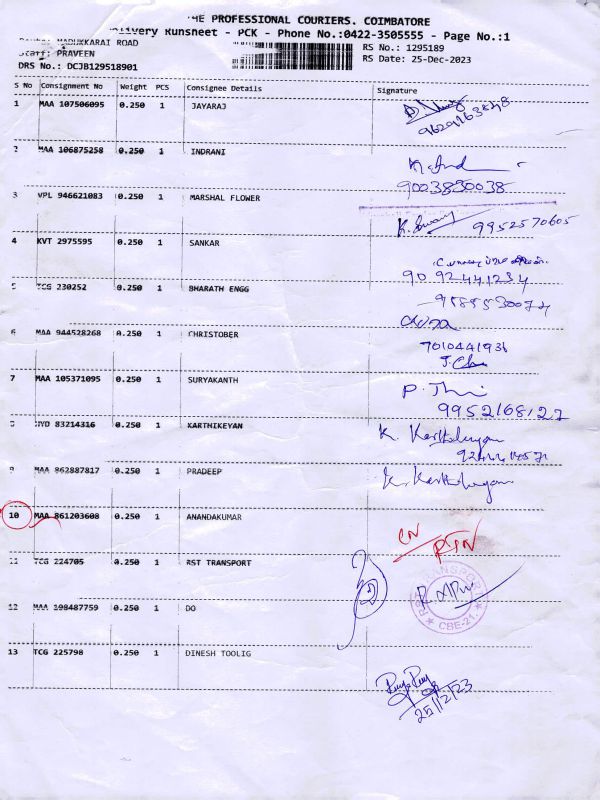 THE PROFESSIONAL COURIERS. COIMBATORE
Delivery Runsheet - PCK - Phone No.:0422-3505555 - Page No.:1
MADUKKARAI ROAD RS No.: 1295189
Staff: PRAVEEN RS Date: 25-Dec-2023
DRS No.: DCJB129518901
S No Consignment No Weight PCS Consignee Details Signature
1 MAA 107506095 0.250 1 JAYARAJ
9629163848
2 MAA 106875258 0.250 1 INDRANI
9003830038
3 VPL 946621083 0.250 1 MARSHAL FLOWER
9952570605
4 KVT 2975595 0.250 1 SANKAR
9092441234
5 TCG 230252 0.250 1 BHARATH ENGG
6 MAA 944528268 0.250 1 CHRISTOBER
7010441936
7 MAA 105371095 0.250 1 SURYAKANTH
9952168127
8 HYD 83214316 0.250 1 KARTHIKEYAN K. Karthikeyan
9 MAA 862887817 0.250 1 PRADEEP K. Karthikeyan
10 MAA 861203608 0.250 1 ANANDAKUMAR
CN RTN
11 TCG 224705 0.250 1 RST TRANSPORT
CBE-21
12 MAA 0.250 1 DO
13 TCG 225798 0.250 1 DINESH TOOLIG
25/12/23